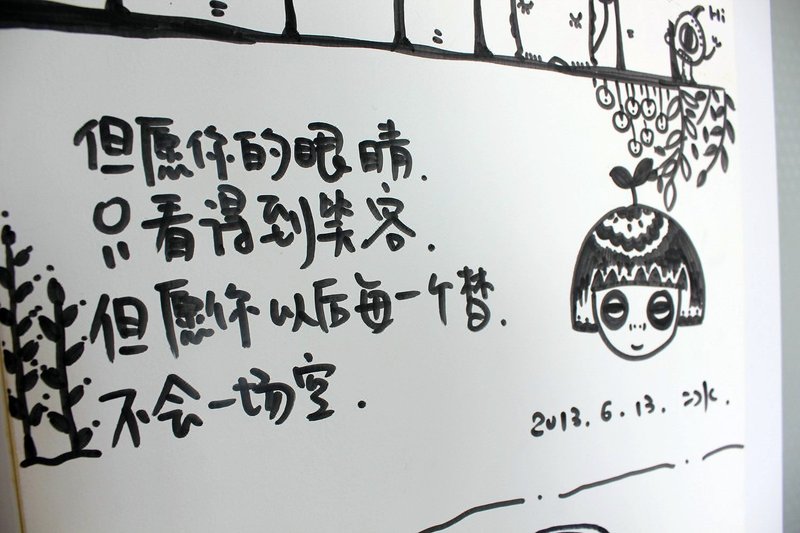 Hi
但愿你的眼睛.
只看得到笑容.
但愿你以后每一个梦.
不会一场空.
2013.6.13.